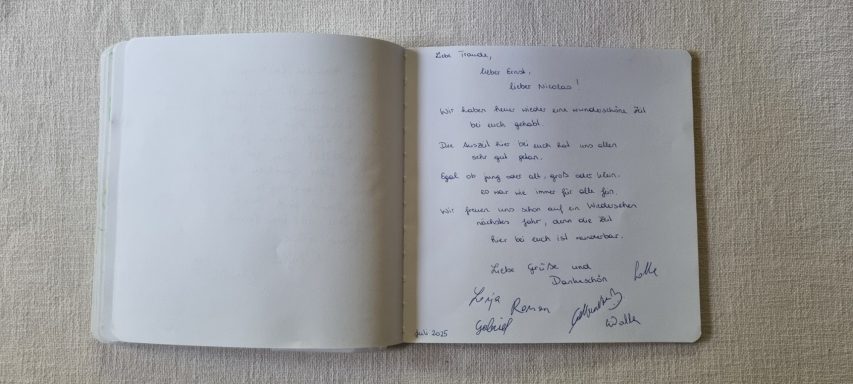 Liebe Traude,
lieber Ernst,
lieber Nicolas!
Wir haben heuer wieder eine wunderschöne Zeit
bei euch gehabt.
Die Auszeit hier bei euch hat uns allen
sehr gut getan.
Egal ob jung oder alt, groß oder klein.
es war wie immer für alle fein.
Wir freuen uns schon auf ein Wiedersehen
nächstes Jahr, denn die Zeit
hier bei euch ist wunderbar.
Liebe Grüße und
Dankeschön
Roman
Gabriel
Juli 2025